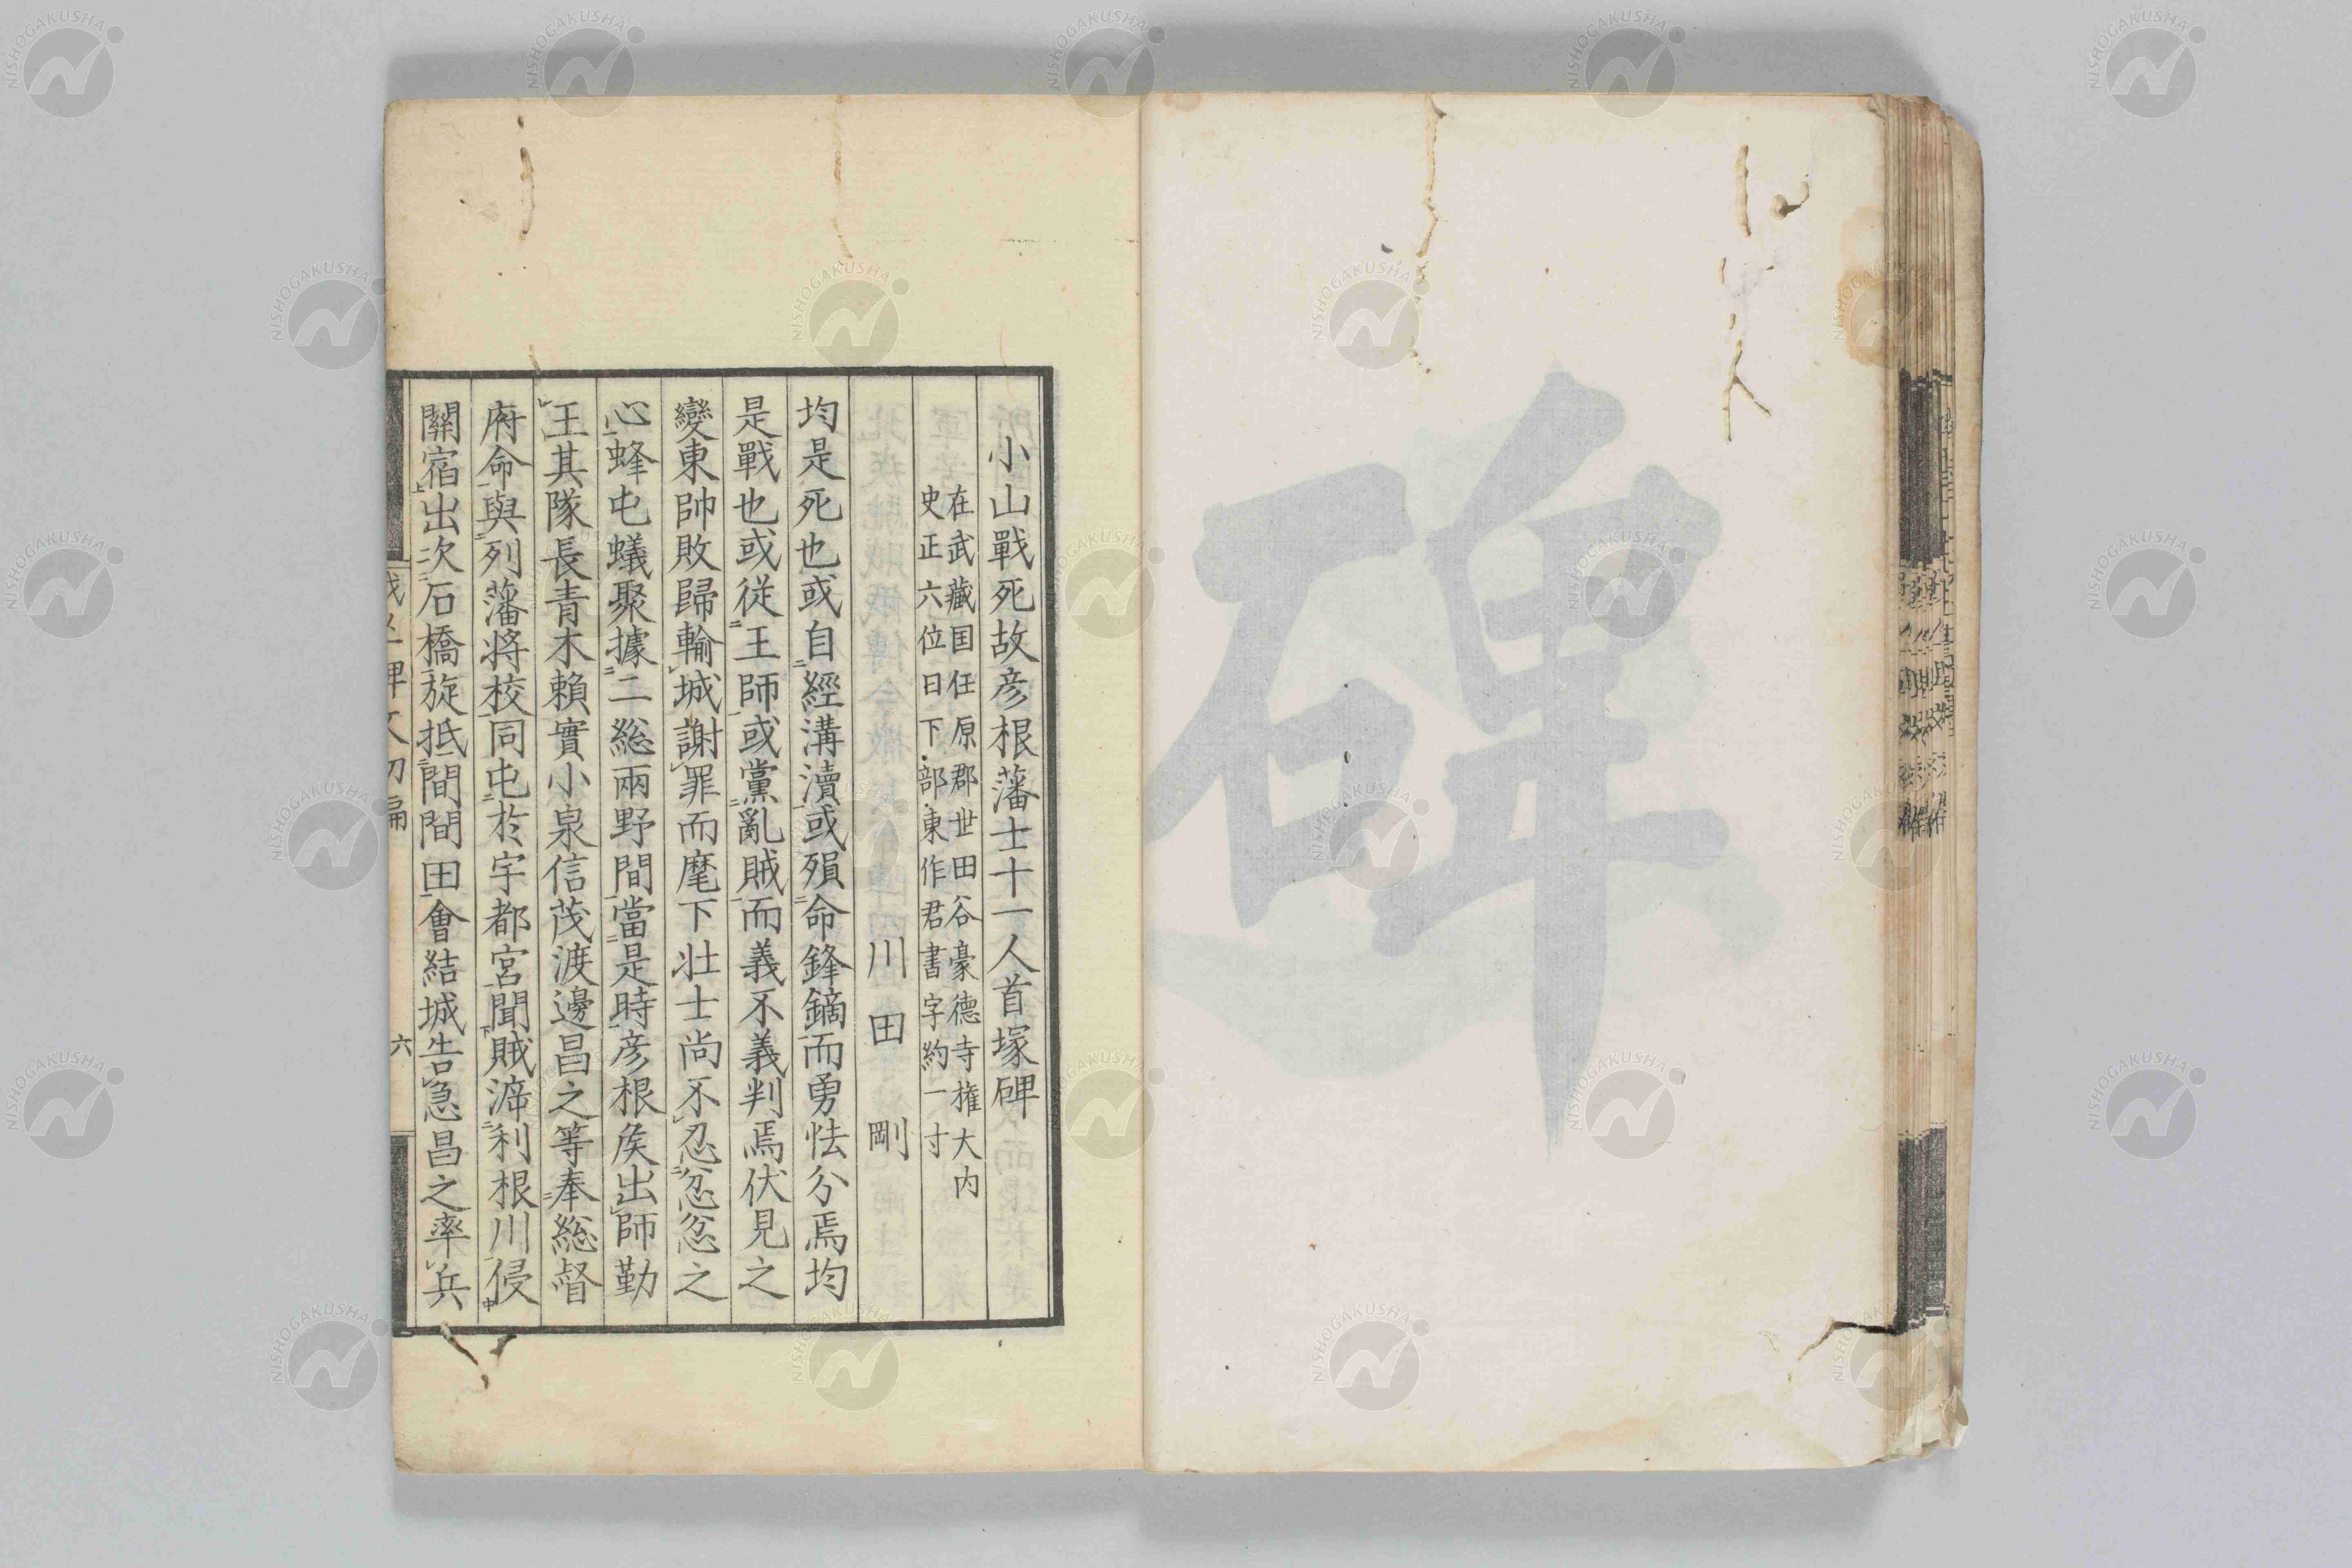 碑
小山戰死故彦根藩士十一人首塚碑
在武藏国任原郡世田谷豪德寺権大内
史正六位日下部東作君書字約一寸
川田剛
均是死也或自經溝瀆或殞命鋒鏑而勇怯分焉均
是戰也或従王師或黨亂賊而義不義判焉伏見之
變東帥敗歸輸城謝罪而麾下壮士尚不忍忿忿之
心蜂屯蟻聚據二総兩野間當是時彦根矦出師勤
王其隊長青木賴實小泉信茂渡邊昌之等奉総督
府命與列藩将校同屯於宇都宮聞賊渧利根川侵
關宿出次石橋旋抵間間田會結城告急昌之率兵
碑文初編
六
NISHOGAKUSHA